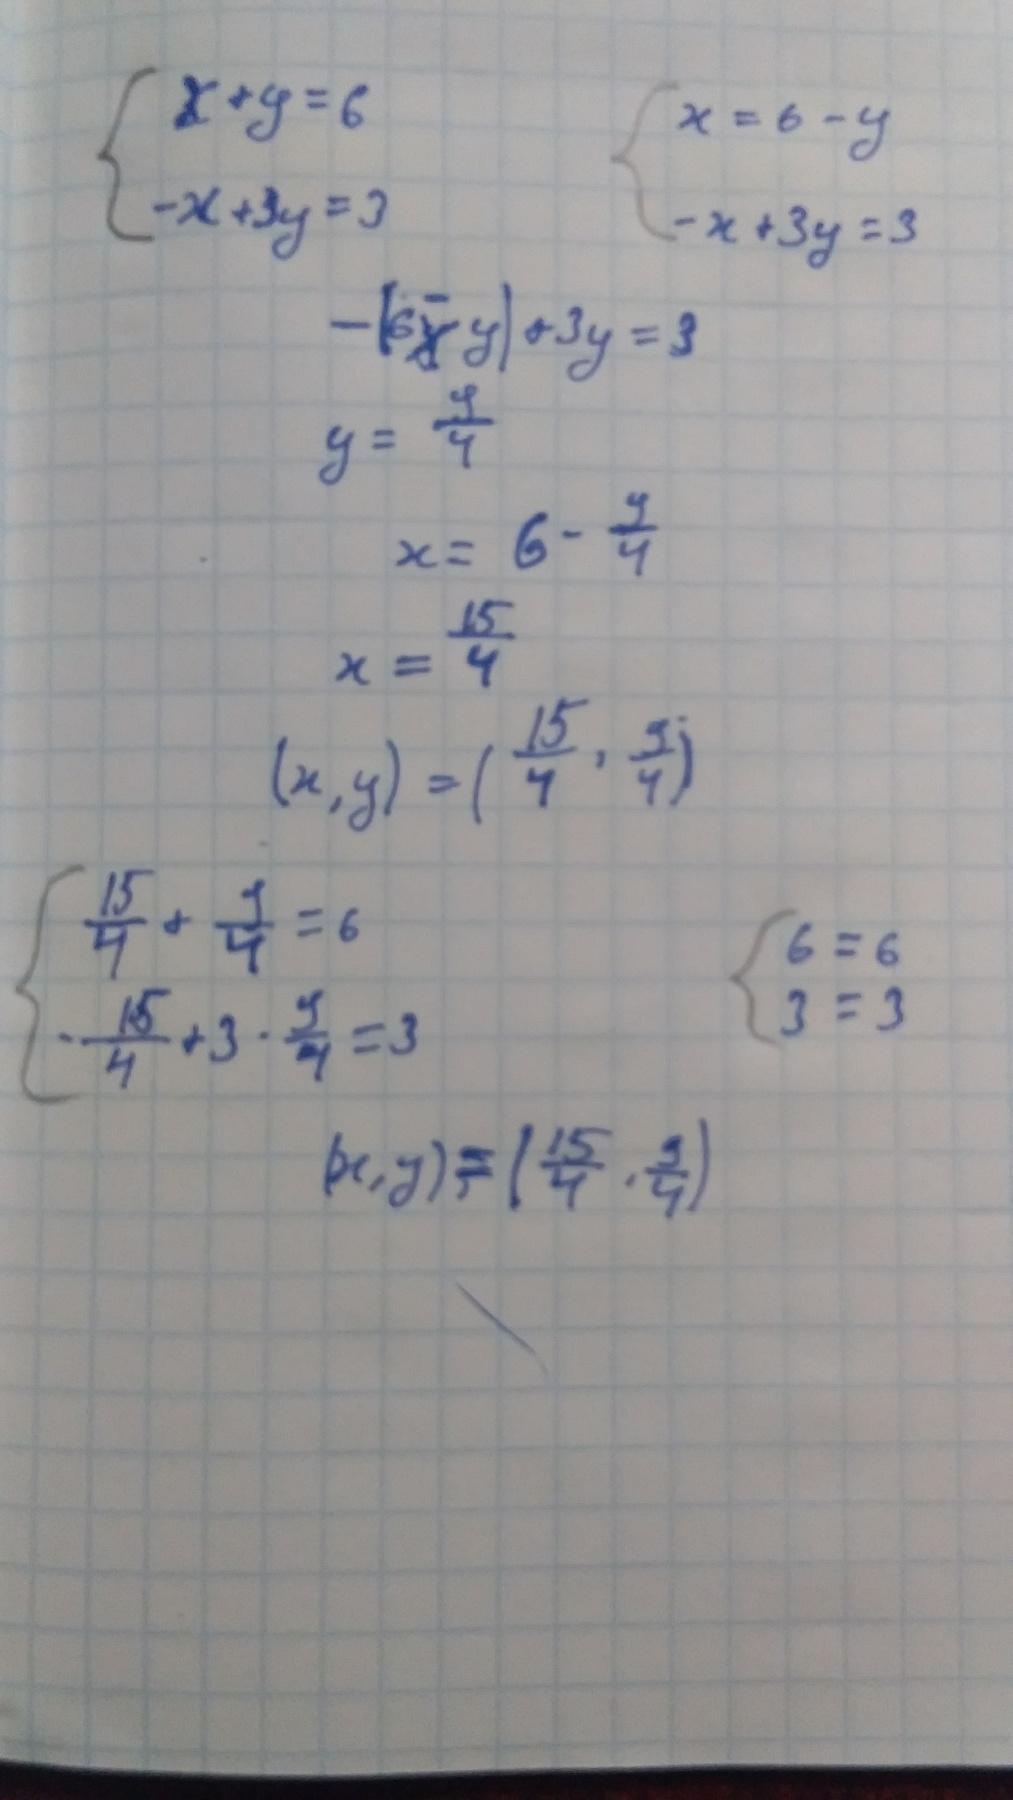 { x+y=6    { x=6-y
{ -x+3y=3    { -x+3y=3
-(6-y)+3y=3
y= 9/4
x= 6- 9/4
x= 15/4
(x,y)=( 15/4, 9/4)
{ 15/4 + 9/4 =6    { 6=6
{ - 15/4 +3· 9/4 =3    { 3=3
(x,y)=( 15/4, 9/4)